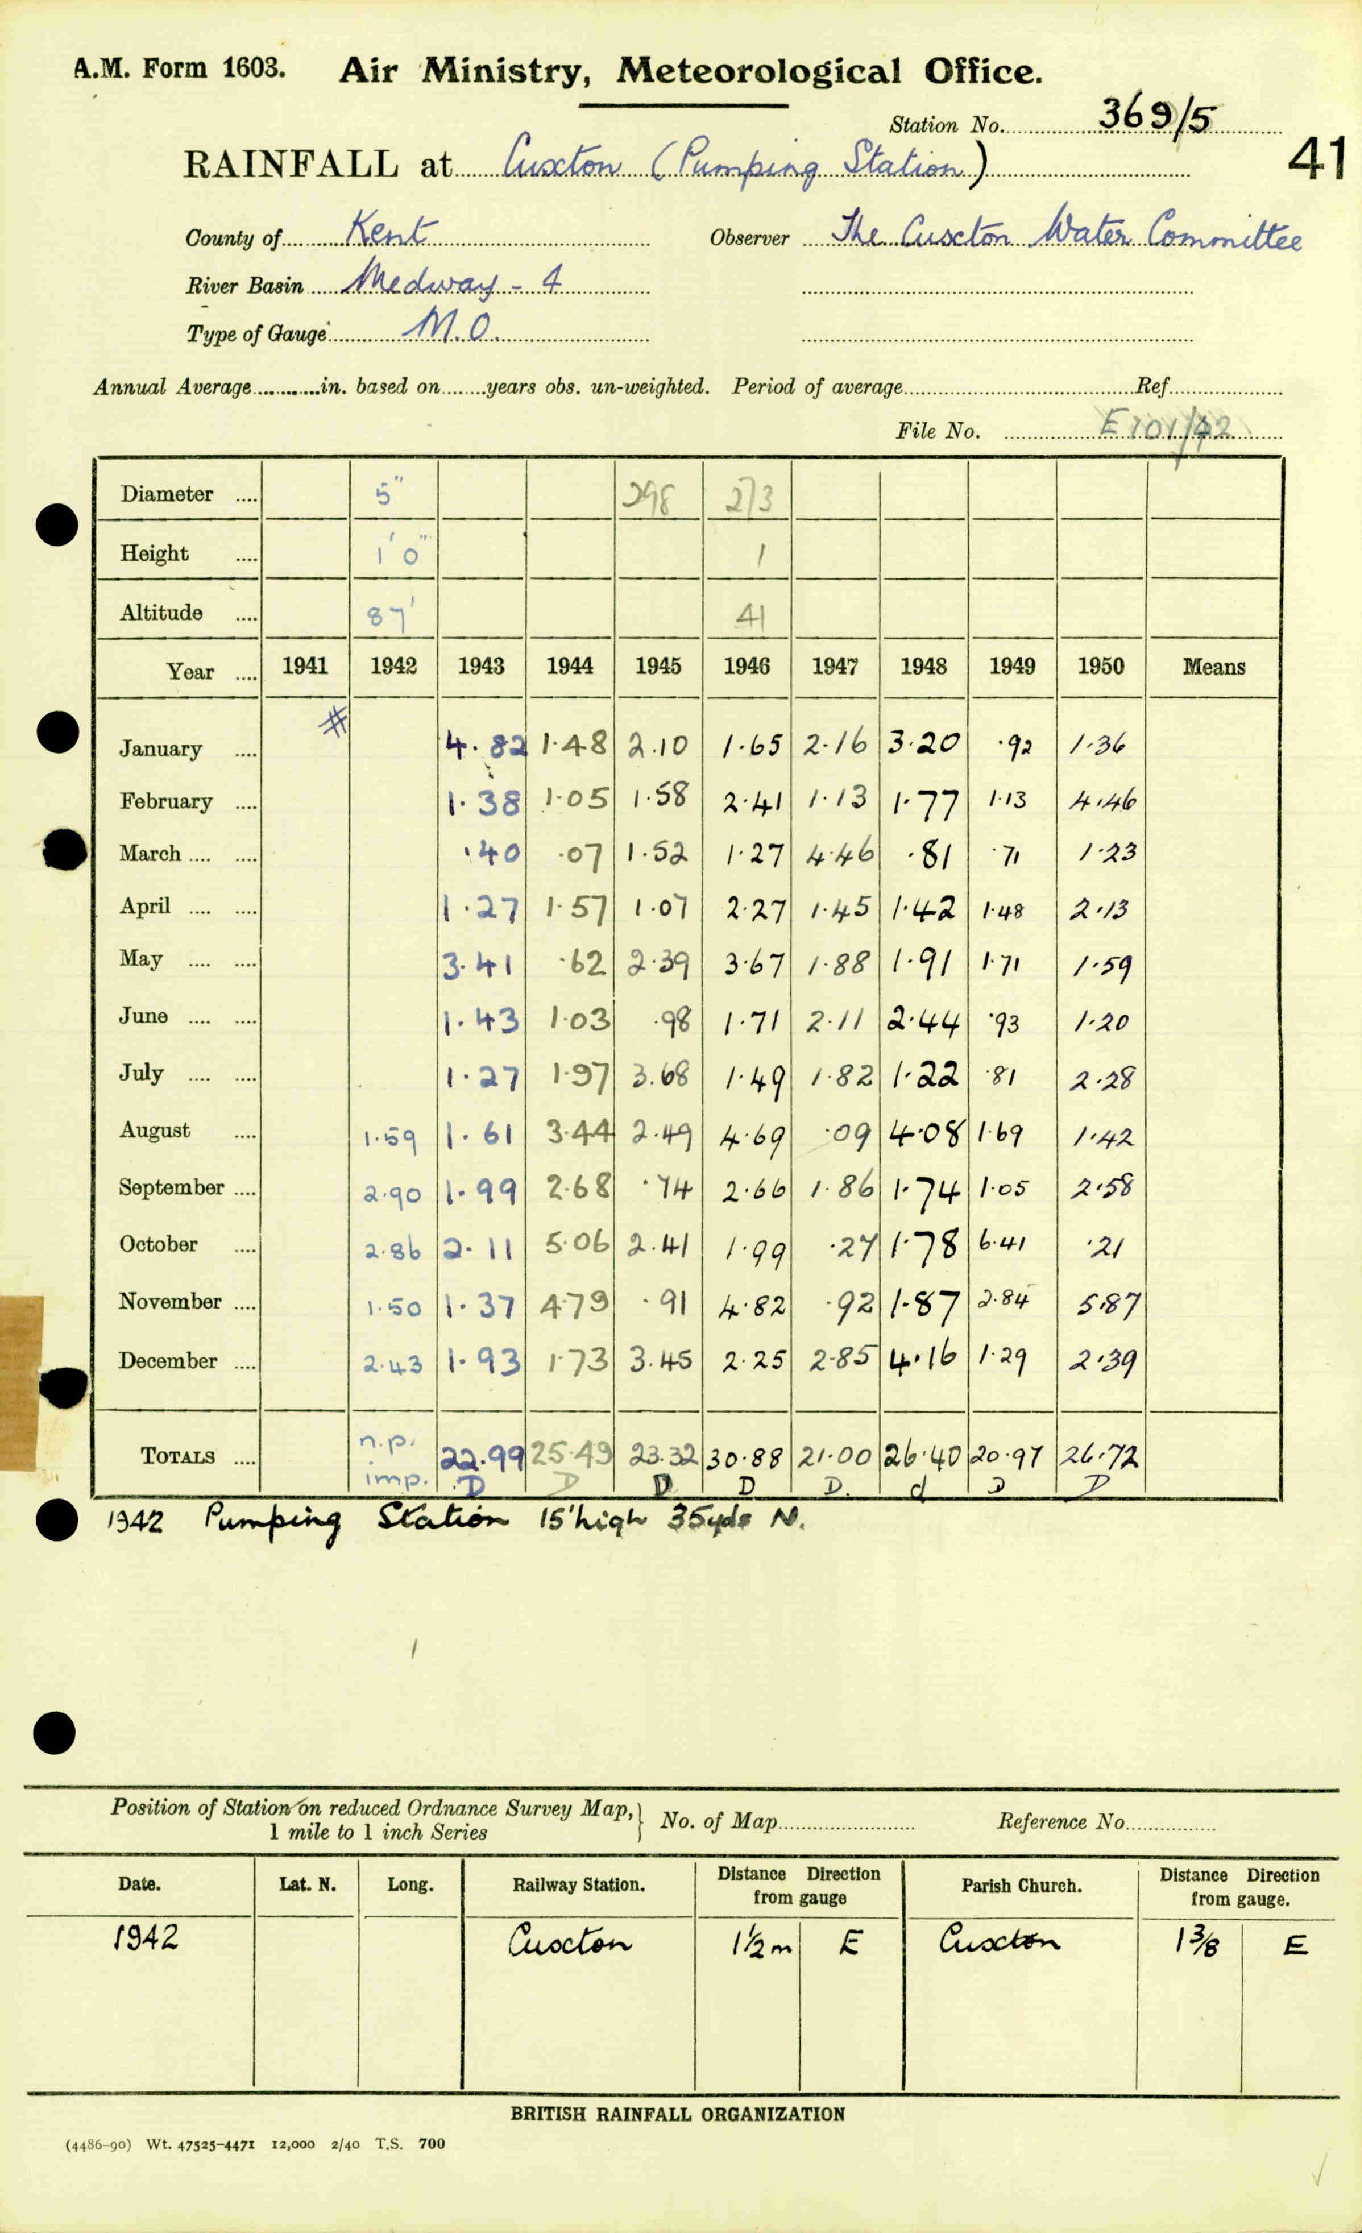 A.M. Form 1603. Air Ministry, Meteorological Office.
Station No. 369/5
41
RAINFALL at Cuxton (Pumping Station)
County of Kent Observer The Cuxton Water Committee
River Basin Medway - 4
Type of Gauge M.O.
Annual Average in. based on years obs. un-weighted. Period of average Ref
File No. E101/42
Diameter 5" 298 273
Height 1'0" 1
Altitude 87' 41
Year 1941 1942 1943 1944 1945 1946 1947 1948 1949 1950 Means
#
January 4.82 1.48 2.10 1.65 2.16 3.20 .92 1.36
February 1.38 1.05 1.58 2.41 1.13 1.77 1.13 4.46
March .40 .07 1.52 1.27 4.46 .81 .71 1.23
April 1.27 1.57 1.07 2.27 1.45 1.42 1.48 2.13
May 3.41 .62 2.39 3.67 1.88 1.91 1.71 1.59
June 1.43 1.03 .98 1.71 2.11 2.44 .93 1.20
July 1.27 1.97 3.68 1.49 1.82 1.22 .81 2.28
August 1.59 1.61 3.44 2.49 4.69 .09 4.08 1.69 1.42
September 2.90 1.99 2.68 .74 2.66 1.86 1.74 1.05 2.58
October 2.86 2.11 5.06 2.41 1.99 .27 1.78 6.41 .21
November 1.50 1.37 4.79 .91 4.82 .92 1.87 2.84 5.87
December 2.43 1.93 1.73 3.45 2.25 2.85 4.16 1.29 2.39
TOTALS n.p. 22.99 25.49 23.32 30.88 21.00 26.40 20.97 26.72
imp. D D D D D. d D D
1942 Pumping Station 15' high 35yds N.
Position of Station on reduced Ordnance Survey Map, 1 mile to 1 inch Series No. of Map Reference No.
Date. Lat. N. Long. Railway Station. Distance Direction from gauge Parish Church. Distance Direction from gauge.
1942 Cuxton 1½m E Cuxton 1⅜ E
BRITISH RAINFALL ORGANIZATION
(4486-90) Wt. 47525-4471 12,000 2/40 T.S. 700